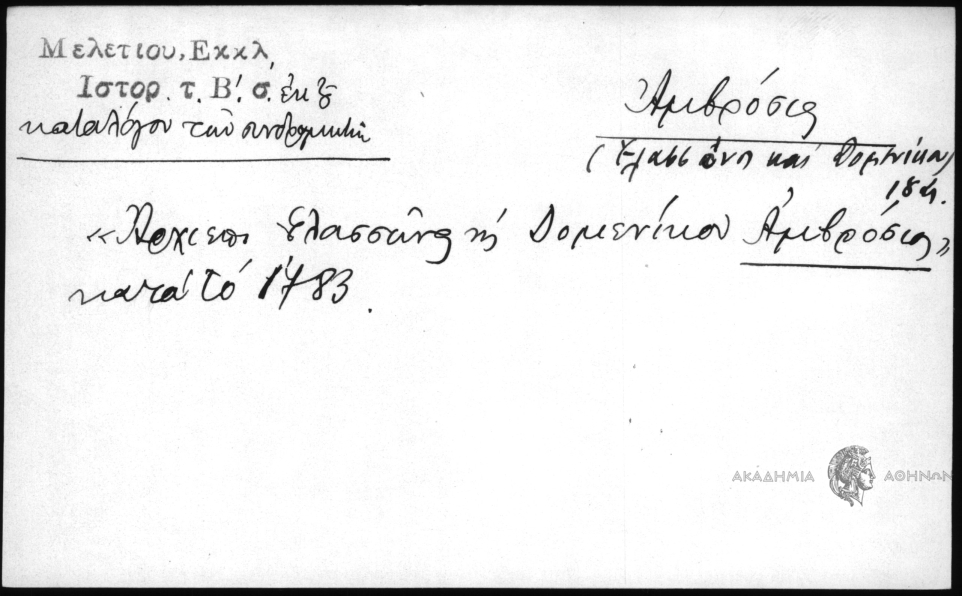 Μελετιου, Εκκλ,
Ιστορ. τ. Β'. σ. ἐκ τοῦ
καταλόγου τῶν συνδρομητῶν
Ἀμβρόσιος
(Ἐλασσῶνος καὶ Δομενίκου)
«Ἀρχιεπι Ἐλασσῶνος κὴ Δομενίκου Ἀμβρόσιος»
κατὰ τὸ 1783.
ΑΚΑΔΗΜΙΑ ΑΘΗΝΩΝ